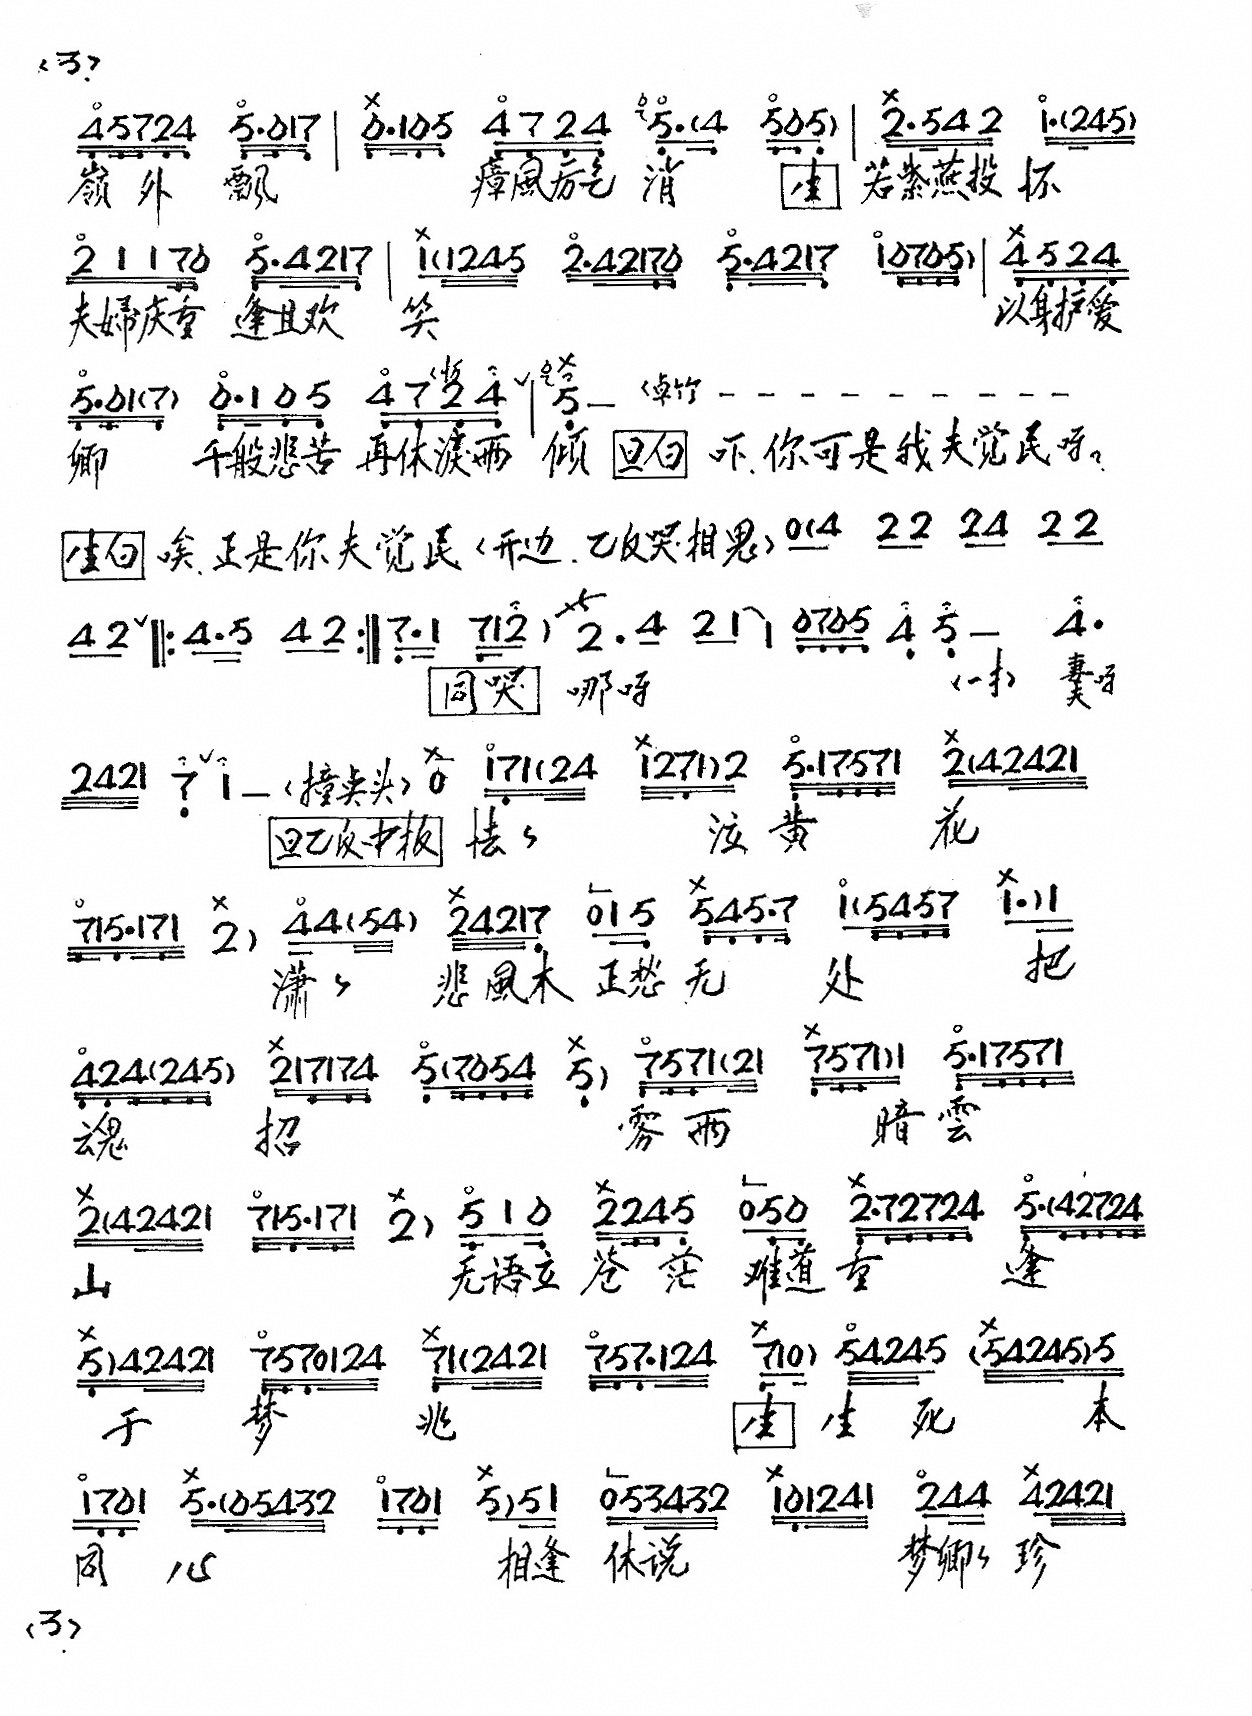 <3>
45724 5·017 | 0·105 4724 5·(4 505) | 2·542 1·(245)
嶺外 飄 瘴風厉乞 消 生 若紫燕投怀
2 1 1 70 5·4217 | 1(1245 2·42170 5·4217 10705) | 4524
夫婦庆重 逢且欢 笑 以身护爱
5·01(7) 0·105 4724 ˇ | 5 — (卓竹 - - - - - - - - -
卿 千般悲苦 再休淚雨 倾 旦白 吓、你可是我夫觉民呀?
生白 唉、正是你夫觉民(开边、乙反哭相思) 0(4 22 24 22
42 ˇ ‖: 4·5 42 :‖ 7·1 712) 2·4 21 1 0705 4 5 — 4·
同哭 哪呀 (一才) 妻夫呀
2421 7 ˇ 1 — (撞点头) 0 171(24 1271)2 5·17571 2(42421
旦乙反中板 怯々 泣黄 花
715·171 2) 44(54) 24217 015 545·7 1(5457 1·)1
潇々 悲風木 正愁无 处 把
424(245) 217174 5(7054 5) 7571(21 7571)1 5·17571
魂 招 雾雨 暗雲
2(42421 715·171 2) 510 2245 050 2·72724 5·(42724
山 无语立 苍茫 难道重 逢
5)42421 7570124 71(2421 757·124 710) 54245 (54245)5
于 梦 兆 生 生死 本
1701 5·(05432 1701 5)51 053432 101241 244 42421
同 心 相逢 休说 梦卿々 珍
<3>